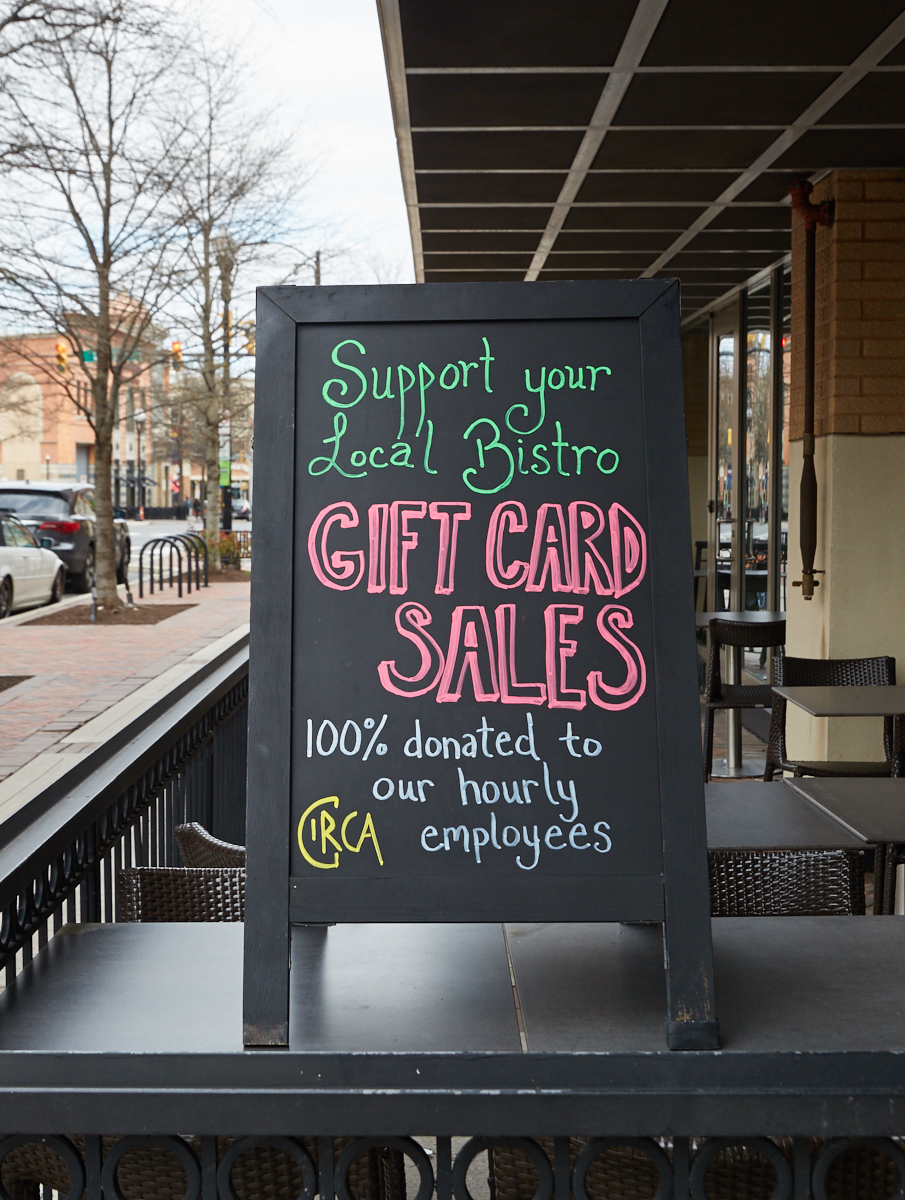 Support your
Local Bistro
GIFT CARD
SALES
100% donated to
our hourly
employees
CIRCA